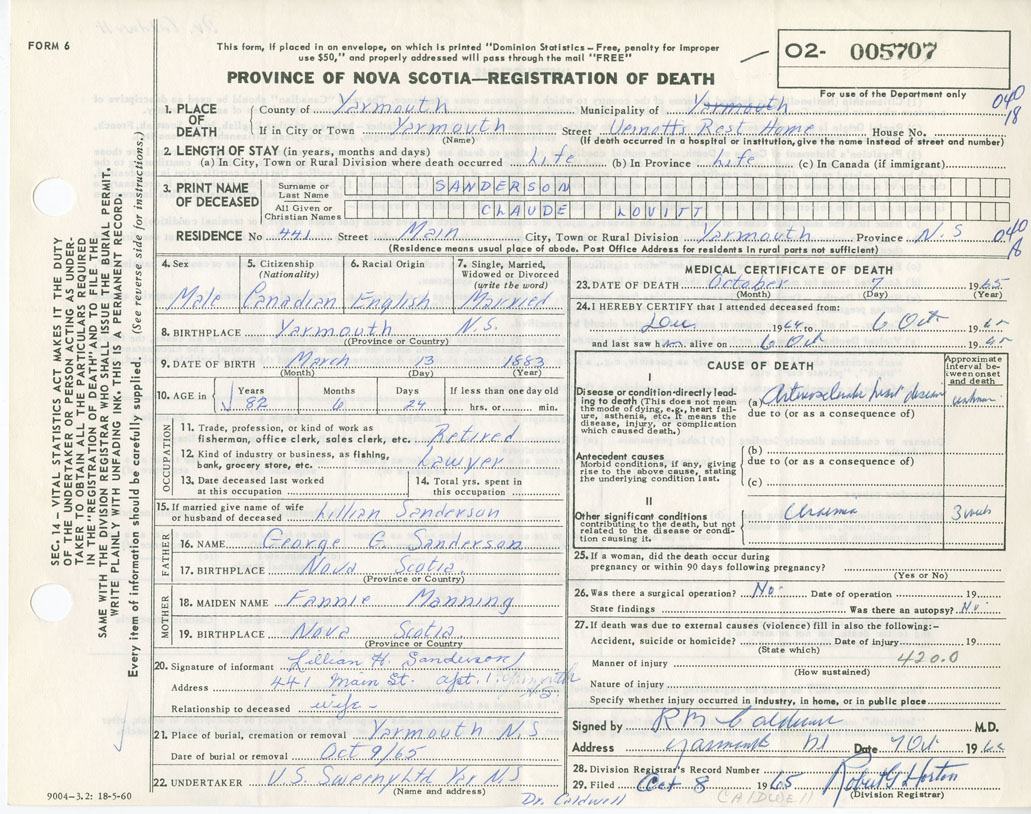 FORM 6
This form, if placed in an envelope, on which is printed "Dominion Statistics – Free, penalty for improper
use $50," and properly addressed will pass through the mail "FREE"
PROVINCE OF NOVA SCOTIA—REGISTRATION OF DEATH
02- 005707
For use of the Department only
040
18
1. PLACE OF DEATH
County of Yarmouth Municipality of Yarmouth
If in City or Town Yarmouth Street Vernott's Rest Home House No.
(Name) (If death occurred in a hospital or institution, give the name instead of street and number)
2. LENGTH OF STAY (in years, months and days)
(a) In City, Town or Rural Division where death occurred Life (b) In Province Life (c) In Canada (if immigrant)
3. PRINT NAME OF DECEASED
Surname or Last Name SANDERSON
All Given or Christian Names CLAUDE LOVITT
RESIDENCE No 441 Street Main City, Town or Rural Division Yarmouth Province N.S 040
(Residence means usual place of abode. Post Office Address for residents in rural parts not sufficient) 18
SEC. 14 – VITAL STATISTICS ACT MAKES IT THE DUTY
OF THE UNDERTAKER OR PERSON ACTING AS UNDER-
TAKER TO OBTAIN ALL THE PARTICULARS REQUIRED
IN THE "REGISTRATION OF DEATH" AND TO FILE THE
SAME WITH THE DIVISION REGISTRAR WHO SHALL ISSUE THE BURIAL PERMIT.
WRITE PLAINLY WITH UNFADING INK. THIS IS A PERMANENT RECORD.
Every item of information should be carefully supplied. (See reverse side for instructions.)
4. Sex Male
5. Citizenship (Nationality) Canadian
6. Racial Origin English
7. Single, Married, Widowed or Divorced (write the word) Married
8. BIRTHPLACE Yarmouth N.S.
(Province or Country)
9. DATE OF BIRTH March 13 1883
(Month) (Day) (Year)
10. AGE in Years 82 Months 6 Days 24 If less than one day old hrs. or min.
OCCUPATION
11. Trade, profession or kind of work as
fisherman, office clerk, sales clerk, etc. Retired
12. Kind of industry or business, as fishing,
bank, grocery store, etc. Lawyer
13. Date deceased last worked
at this occupation
14. Total yrs. spent in
this occupation
15. If married give name of wife
or husband of deceased Lillian Sanderson
FATHER
16. NAME George G. Sanderson
17. BIRTHPLACE Nova Scotia
(Province or Country)
MOTHER
18. MAIDEN NAME Fannie Manning
19. BIRTHPLACE Nova Scotia
(Province or Country)
20. Signature of informant Lillian H. Sanderson
Address 441 Main St. apt. 1. Yarmouth N.S.
Relationship to deceased wife
21. Place of burial, cremation or removal Yarmouth N.S
Date of burial or removal Oct 9/65
22. UNDERTAKER V.S. Sweeny Ltd Yar N.S
(Name and address)
9004-3.2: 18-5-60
MEDICAL CERTIFICATE OF DEATH
23. DATE OF DEATH October 7 1965
(Month) (Day) (Year)
24. I HEREBY CERTIFY that I attended deceased from:
Dec 1964 to 6 Oct 1965
and last saw him alive on 6 Oct 1965
CAUSE OF DEATH
Approximate interval between onset and death
I
Disease or condition directly lead-
ing to death (This does not mean
the mode of dying, e.g., heart fail-
ure, asthenia, etc. It means the
disease, injury, or complication
which caused death.)
(a) Arteriosclerotic heart disease unknown
due to (or as a consequence of)
Antecedent causes
Morbid conditions, if any, giving
rise to the above cause, stating
the underlying condition last.
(b)
due to (or as a consequence of)
(c)
II
Other significant conditions
contributing to the death, but not
related to the disease or condi-
tion causing it.
Uraemia 3 wks
25. If a woman, did the death occur during
pregnancy or within 90 days following pregnancy?
(Yes or No)
26. Was there a surgical operation? No. Date of operation 19
State findings Was there an autopsy? No.
27. If death was due to external causes (violence) fill in also the following:-
Accident, suicide or homicide? Date of injury 19
(State which)
Manner of injury 420.0
(How sustained)
Nature of injury
Specify whether injury occurred in industry, in home, or in public place
Signed by R M Caldwell M.D.
Address Yarmouth NS Date 7 Oct 1965
28. Division Registrar's Record Number
29. Filed Oct 8 1965 Robert G Horton
(Division Registrar)
Dr. Caldwell
CALDWELL